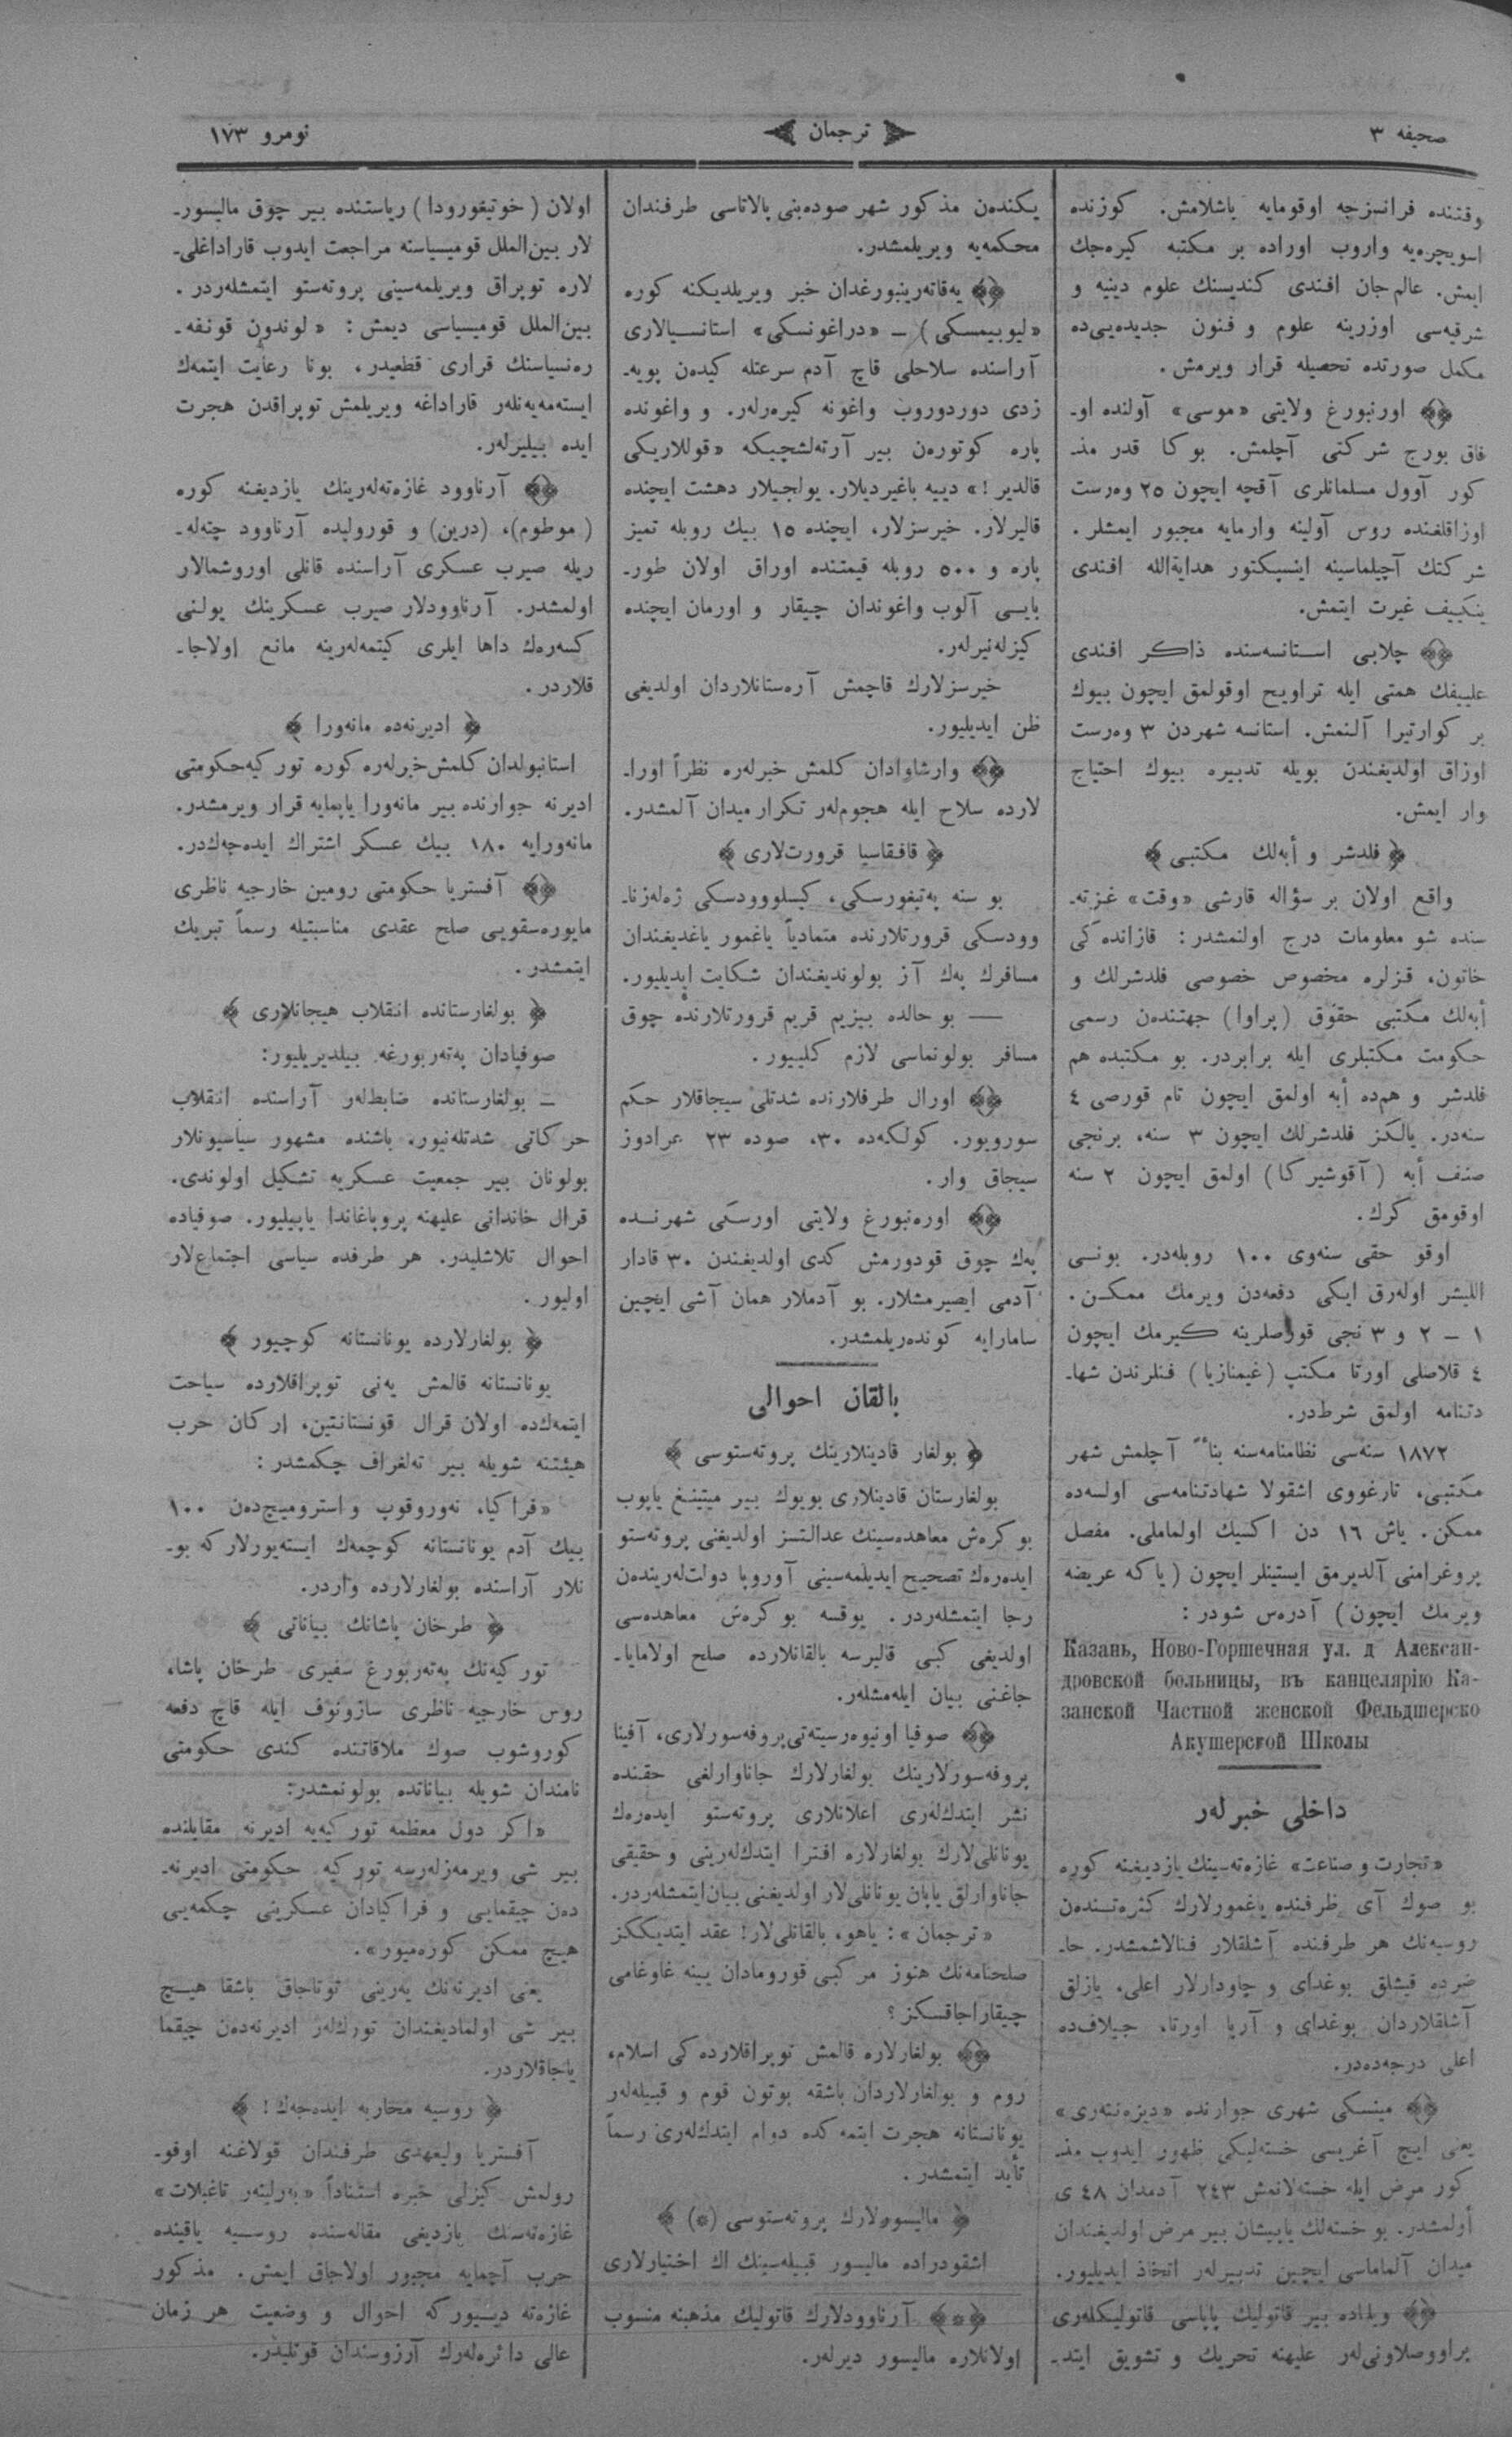 صحیفه ۳
ترجمان
نومرو ۱۷۳
وقتنده فرانسزجه اوقومایه باشلامش. کوزنده
اسویچره‌یه واروب اوراده بر مکتبه کیره‌جك
ایمش. عالم‌جان افندی کندیسنك علوم دینیه و
شرقیه‌سی اوزرینه علوم و فنون جدیده‌یی‌ده
مکمل صورتده تحصیله قرار ویرمش.
اورنبورغ ولایتی «موسی» آولنده او-
فاق بورج شرکتی آچلمش. بوکا قدر مذ-
کور آوول مسلمانلری آقچه ایچون ۲٥ وه‌رست
اوزاقلغنده روس آولینه وارمایه مجبور ایمشلر.
شرکتك آچیلماسینه اینسپکتور هدایةالله افندی
غیرت ایتمش.
چلابی استانسه‌سنده ذاکر افندی
علییفك همتی ایله تراویح اوقولمق ایچون بیوك
بر کوارتیرا آلنمش. استانسه شهردن ۳ وه‌رست
اوزاق اولدیغندن بویله تدبیره بیوك احتیاج
وار ایمش.
﴿ فلدشر و أبه‌لك مکتبی ﴾
واقع اولان بر سؤاله قارشی «وقت» غزته-
سنده شو معلومات درج اولنمشدر: قازانده‌کی
خاتون، قزلره مخصوص خصوصی فلدشرلك و
أبه‌لك مکتبی حقوق (پراوا) جهتندەن رسمی
حکومت مکتبلری ایله برابردر. بو مکتبده هم
فلدشر و هم‌ده أبه اولمق ایچون تام قورصی ٤
سنه‌در. یالکز فلدشرلك ایچون ۳ سنه، برنجی
صنف أبه (آقوشیرکا) اولمق ایچون ۲ سنه
اوقومق کرك.
اوقو حقی سنه‌وی ۱۰۰ روبله‌در. بونی
اللیشر اوله‌رق ایکی دفعه‌دن ویرمك ممکن.
۱ – ۲ و ۳ نجی قورصلرینه کیرمك ایچون
٤ قلاصلی اورتا مکتب (غیمنازیا) فنلرندن شها-
دتنامه اولمق شرطدر.
۱۸۷۲ سنه‌سی نظامنامه‌سنه بناءً آچلمش شهر
مکتبی، تارغووی اشقولا شهادتنامه‌سی اولسه‌ده
ممکن. یاش ۱٦ دن اکسیك اولماملی. مفصل
پروغرامنی آلدیرمق ایستینلر ایچون (یاکه عریضه
ویرمك ایچون) آدرەس شودر:
Казань, Ново-Горшечная ул. д Алексан-
дровской больницы, въ канцелярію Ка-
занской Частной женской Фельдшерско
Акушерской Школы
داخلی خبرلەر
«تجارت و صناعت» غازەتەسینك یازدیغنه کوره
بو صوك آی ظرفنده یاغمورلارك کثرەتندەن
روسیه‌نك هر طرفنده آشلقلار فنالاشمشدر. حا-
ضرده قیشلق بوغدای و چاودارلار اعلی، یازلق
آشلقلاردان بوغدای و آرپا اورتا، جیلاف‌ده
اعلی درجه‌ده‌در.
مینسکی شهری جوارنده «دیزەنتەری»
یعنی ایچ آغریسی خستەلیکی ظهور ایدوب مذ-
کور مرض ایله خستەلانمش ۲٤۳ آدمدان ٤۸ ی
أولمشدر. بو خستەلك یاپیشان بیر مرض اولدیغندان
میدان آلماماسی ایچین تدبیرلەر اتخاذ ایدیلیور.
ویلناده بیر قاتولیك پاپاسی قاتولیکلەری
پراووصلاونی‌لەر علیهنه تحریك و تشویق ایتد-
یکندەن مذکور شهر صودەبنی پالاتاسی طرفندان
محکمەیه ویریلمشدر.
یەقاتەرینبورغدان خبر ویریلدیکنه کوره
«لیوبیمسکی» – «دراغونسکی» استانسیالاری
آراسنده سلاحلی قاچ آدم سرعتله کیدەن پویە-
زدی دوردوروب واغونه کیرەرلەر. و واغونده
پاره کوتورەن بیر آرتەلشچیکه «قوللاریکی
قالدیر!» دییه باغیردیلار. یولجیلار دهشت ایچنده
قالیرلار. خیرسزلار، ایچنده ۱٥ بیك روبله تمیز
پاره و ٥۰۰ روبله قیمتنده اوراق اولان طور-
بایی آلوب واغوندان چیقار و اورمان ایچنده
کیزلەنیرلەر.
خیرسزلارك قاچمش آرەستانلاردان اولدیغی
ظن ایدیلیور.
وارشاوادان کلمش خبرلەره نظراً اورا-
لارده سلاح ایله هجوملەر تکرار میدان آلمشدر.
﴿ قافقاسیا قرورت‌لاری ﴾
بو سنه پەتیغورسکی، کیسلوودسکی ژەلەزنا-
وودسکی قرورتلارنده متمادیاً یاغمور یاغدیغندان
مسافرك پەك آز بولوندیغندان شکایت ایدیلیور.
— بو حالده بیزیم قریم قرورتلارنده چوق
مسافر بولونماسی لازم کلییور.
اورال طرفلارنده شدتلی سیجاقلار حکم
سورویور. کولکەده ۳۰، صوده ۲۳ غرادوز
سیجاق وار.
اورەنبورغ ولایتی اورسکی شهرنده
پەك چوق قودورمش کدی اولدیغندن ۳۰ قادار
آدمی ایصیرمشلار. بو آدملار همان آشی ایچین
سامارایه کوندەریلمشدر.
بالقان احوالی
﴿ بولغار قادینلارینك پروتەستوسی ﴾
بولغارستان قادینلاری بویوك بیر میتینغ یاپوب
بوکرەش معاهدەسینك عدالتسز اولدیغنی پروتەستو
ایدەرەك تصحیح ایدیلمەسینی آوروپا دولت‌لەریندەن
رجا ایتمشلەردر. یوقسه بوکرەش معاهدەسی
اولدیغی کبی قالیرسه بالقانلارده صلح اولامایا-
جاغنی بیان ایلەمشلەر.
صوفیا اونیوەرسیتەتی پروفەسورلاری، آفینا
پروفەسورلارینك بولغارلارك جاناوارلغی حقنده
نشر ایتدك‌لەری اعلانلاری پروتەستو ایدەرەك
یونانلی‌لارك بولغارلاره افترا ایتدك‌لەرینی و حقیقی
جاناوارلق یاپان یونانلی‌لار اولدیغنی بیان ایتمشلەردر.
«ترجمان»: یاهو، بالقانلی‌لار! عقد ایتدیککز
صلحنامەنك هنوز مرکبی قورومادان یینه غاوغامی
چیقاراجاقسکز؟
بولغارلاره قالمش توپراقلارده‌کی اسلام،
روم و بولغارلاردان باشقه بوتون قوم و قبیلەلەر
یونانستانه هجرت ایتمەکده دوام ایتدك‌لەری رسماً
تأیید ایتمشدر.
﴿ مالیسورلارك پروتەستوسی (*) ﴾
اشقودراده مالیسور قبیلەسینك اك اختیارلاری
﴿*﴾ آرناوودلارك قاتولیك مذهبنه منسوب
اولانلاره مالیسور دیرلەر.
اولان (خوتیغورودا) ریاستنده بیر چوق مالیسور-
لار بین‌الملل قومیسیاسنه مراجعت ایدوب قاراداغلی-
لاره توپراق ویریلمەسینی پروتەستو ایتمشلەردر.
بین‌الملل قومیسیاسی دیمش: «لوندون قونفە-
رەنسیاسنك قراری قطعیدر، بونا رعایت ایتمەك
ایستەمەیەنلەر قاراداغه ویریلمش توپراقدن هجرت
ایده بیلیرلەر.
آرناوود غازەتەلەرینك یازدیغنه کوره
(موطوم)، (درین) و قورولیده آرناوود چتەلە-
ریله صیرب عسکری آراسنده قانلی اوروشمالار
اولمشدر. آرناوودلار صیرب عسکرینك یولنی
کسەرەك داها ایلری کیتمەلەرینه مانع اولاجا-
قلاردر.
﴿ ادیرنەده مانەورا ﴾
استانبولدان کلمش خبرلەره کوره تورکیه حکومتی
ادیرنه جوارنده بیر مانەورا یاپمایه قرار ویرمشدر.
مانەورایه ۱۸۰ بیك عسکر اشتراك ایدەجەك‌در.
آفستریا حکومتی رومین خارجیه ناظری
مایورەسقویی صلح عقدی مناسبتیله رسماً تبریك
ایتمشدر.
﴿ بولغارستانده انقلاب هیجانلاری ﴾
صوفیادان پەتەربورغه بیلدیریلیور:
– بولغارستانده ضابطلەر آراسنده انقلاب
حرکاتی شدتلەنیور. باشنده مشهور سیاسیونلار
بولونان بیر جمعیت عسکریه تشکیل اولوندی.
قرال خاندانی علیهنه پروپاغاندا یاپیلیور. صوفیاده
احوال تلاشلیدر. هر طرفده سیاسی اجتماع‌لار
اولیور.
﴿ بولغارلارده یونانستانه کوچیور ﴾
یونانستانه قالمش یەنی توپراقلارده سیاحت
ایتمەك‌ده اولان قرال قونستانتین، ارکان حرب
هیئتنه شویله بیر تەلغراف چکمشدر:
«فراکیا، نەوروقوپ واسترومیچ‌دەن ۱۰۰
بیك آدم یونانستانه کوچمەك ایستەیورلارکه بو-
نلار آراسنده بولغارلارده واردر.
﴿ طرخان پاشانك بیاناتی ﴾
تورکیەنك پەتەربورغ سفیری طرخان پاشا،
روس خارجیه ناظری سازونوف ایله قاچ دفعه
کوروشوب صوك ملاقاتنده کندی حکومتی
نامندان شویله بیاناتده بولونمشدر:
«اکر دول معظمه تورکیەیه ادیرنه مقابلنده
بیر شی ویرمەزلەرسه تورکیه حکومتی ادیرنە-
دەن چیقمایی و فراکیادان عسکرینی چکمەیی
هیچ ممکن کورەمیور».
یعنی ادیرنەنك یەرینی توتاجاق باشقا هیچ
بیر شی اولمادیغندان تورك‌لەر ادیرنەدەن چیقما
یاجاقلاردر.
﴿ روسیه محاربه ایدەجەك! ﴾
آفستریا ولیعهدی طرفندان قولاغنه اوقو-
رولمش کیزلی خبره استناداً «بەرلینەر تاغبلات»
غازەتەسنك یازدیغی مقالەسنده روسیه یاقینده
حرب آچمایه مجبور اولاجاق ایمش. مذکور
غازەته دیییورکه احوال و وضعیت هر زمان
عالی دائرەلەرك آرزوسندان قوتلیدر.